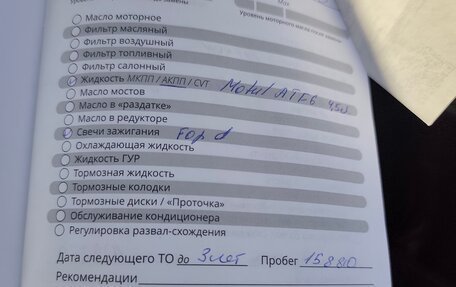 Max
Уровень моторного масла после замены
Масло моторное
Фильтр масляный
Фильтр воздушный
Фильтр топливный
Фильтр салонный
Жидкость МКПП / АКПП / CVT Motul ATF6 45л
Масло мостов
Масло в «раздатке»
Масло в редукторе
Свечи зажигания Ford
Охлаждающая жидкость
Жидкость ГУР
Тормозная жидкость
Тормозные колодки
Тормозные диски / «Проточка»
Обслуживание кондиционера
Регулировка развал-схождения
Дата следующего ТО до 3 лет Пробег 15880
Рекомендации